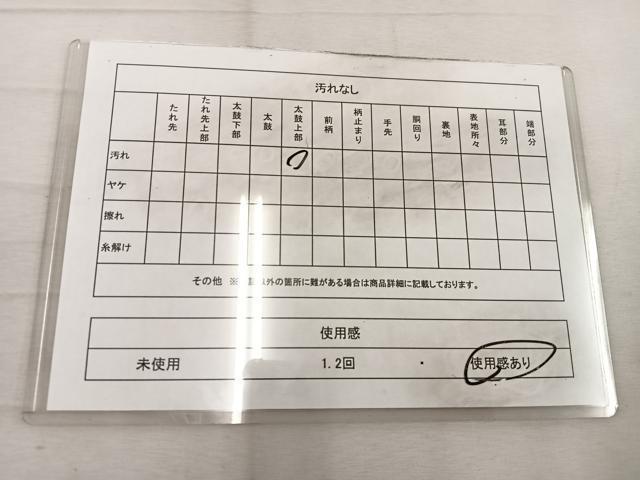 汚れなし
たれ先 たれ先上部 太鼓下部 太鼓 太鼓上部 前柄 柄止まり 手先 胴回り 裏地 表地所々 耳部分 端部分
汚れ
ヤケ
擦れ
糸解け
その他 ※ 以外の箇所に難がある場合は商品詳細に記載しております。
使用感
未使用 1.2回 ・ 使用感あり